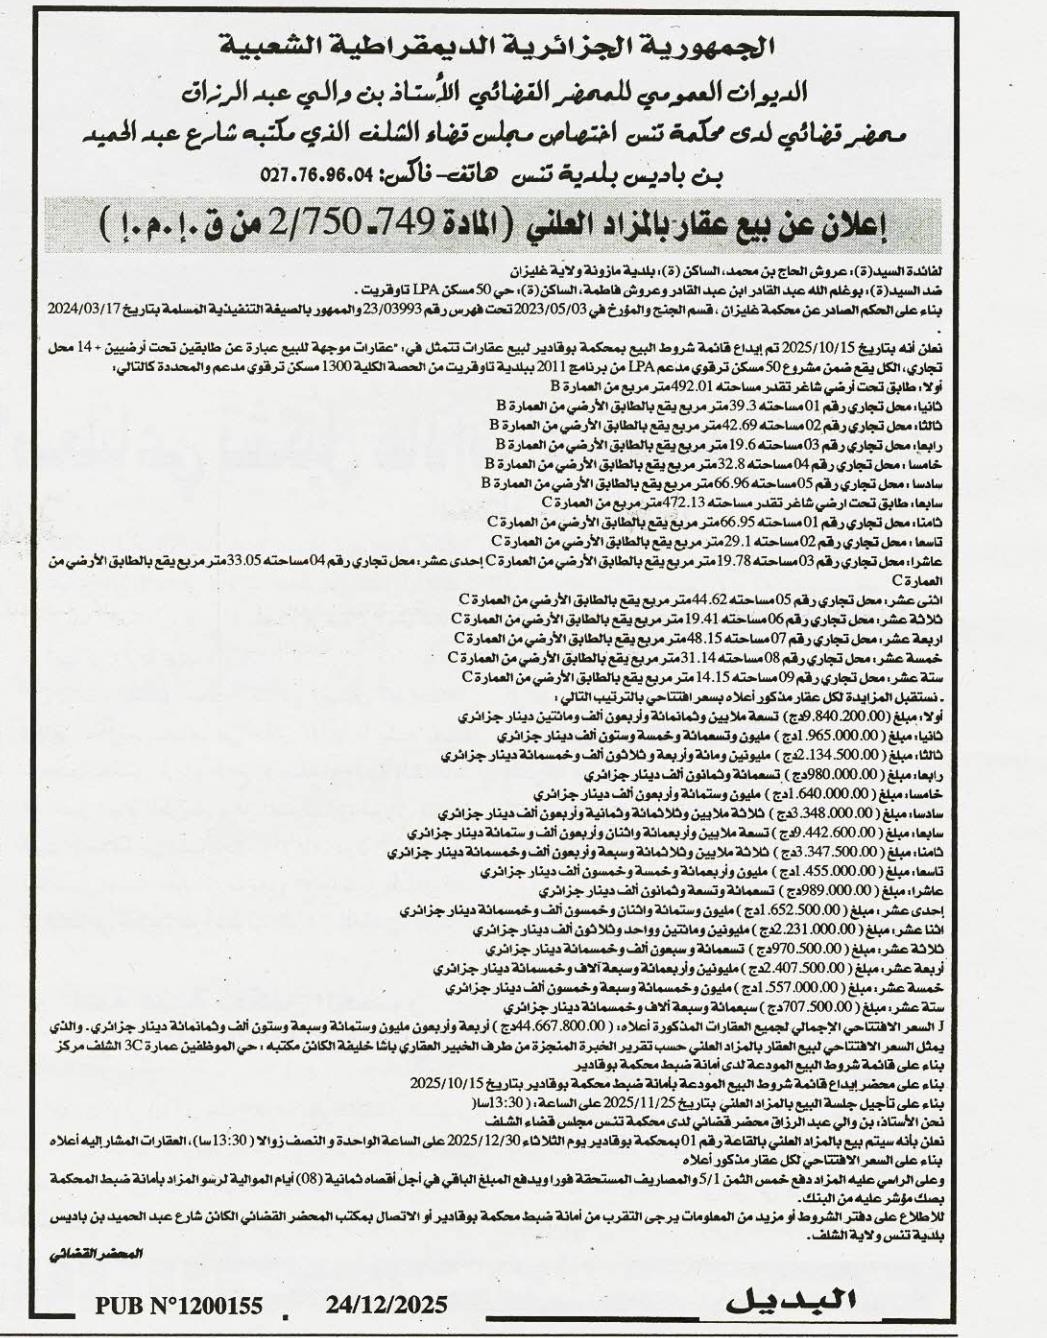 الجمهورية الجزائرية الديمقراطية الشعبية
الديوان العمومي للمحضر القضائي الأستاذ بن والي عبد الرزاق
محضر قضائي لدى محكمة تنس اختصاص مجلس قضاء الشلف الذي مكتبه شارع عبد الحميد
بن باديس بلدية تنس هاتف- فاكس: 027.76.96.04
إعلان عن بيع عقار بالمزاد العلني ( المادة 749ـ 2/750 من ق .إ.م.إ )
لفائدة السيد(ة): عروش الحاج بن محمد، الساكن (ة): بلدية مازونة ولاية غليزان
ضد السيد(ة): بوغلم الله عبد القادر ابن عبد القادر وعروش فاطمة، الساكن(ة): حي 50 مسكن LPA تاوقريت .
بناء على الحكم الصادر عن محكمة غليزان ، قسم الجنح والمؤرخ في 2023/05/03 تحت فهرس رقم 23/03993 والممهور بالصيغة التنفيذية المسلمة بتاريخ 2024/03/17
.
نعلن أنه بتاريخ 2025/10/15 تم إيداع قائمة شروط البيع بمحكمة بوقادير لبيع عقارات تتمثل في: "عقارات موجهة للبيع عبارة عن طابقين تحت أرضيين + 14 محل
تجاري، الكل يقع ضمن مشروع 50 مسكن ترقوي مدعم LPA من برنامج 2011 ببلدية تاوقريت من الحصة الكلية 1300 مسكن ترقوي مدعم والمحددة كالتالي:
أولا: طابق تحت أرضي شاغر تقدر مساحته 492.01متر مربع من العمارة B
ثانيا: محل تجاري رقم 01 مساحته 39.3متر مربع يقع بالطابق الأرضي من العمارة B
ثالثا: محل تجاري رقم 02 مساحته 42.69متر مربع يقع بالطابق الأرضي من العمارة B
رابعا: محل تجاري رقم 03 مساحته 19.6متر مربع يقع بالطابق الأرضي من العمارة B
خامسا: محل تجاري رقم 04 مساحته 32.8متر مربع يقع بالطابق الأرضي من العمارة B
سادسا: محل تجاري رقم 05 مساحته 66.96متر مربع يقع بالطابق الأرضي من العمارة B
سابعا: طابق تحت ارضي شاغر تقدر مساحته 472.13متر مربع من العمارة C
ثامنا: محل تجاري رقم 01 مساحته 66.95متر مربع يقع بالطابق الأرضي من العمارة C
تاسعا: محل تجاري رقم 02 مساحته 29.1متر مربع يقع بالطابق الأرضي من العمارة C
عاشرا: محل تجاري رقم 03 مساحته 19.78متر مربع يقع بالطابق الأرضي من العمارة C إحدى عشر: محل تجاري رقم 04 مساحته 33.05متر مربع يقع بالطابق الأرضي من
العمارة C
اثنى عشر: محل تجاري رقم 05 مساحته 44.62متر مربع يقع بالطابق الأرضي من العمارة C
ثلاثة عشر: محل تجاري رقم 06 مساحته 19.41متر مربع يقع بالطابق الأرضي من العمارة C
اربعة عشر: محل تجاري رقم 07 مساحته 48.15متر مربع يقع بالطابق الأرضي من العمارة C
خمسة عشر: محل تجاري رقم 08 مساحته 31.14متر مربع يقع بالطابق الأرضي من العمارة C
ستة عشر: محل تجاري رقم 09 مساحته 14.15متر مربع يقع بالطابق الأرضي من العمارة C
ـ نستقبل المزايدة لكل عقار مذكور أعلاه بسعر افتتاحي بالترتيب التالي :
أولا: مبلغ (9.840.200.00دج) تسعة ملايين وثمانمائة وأربعون ألف ومائتين دينار جزائري
ثانيا: مبلغ (1.965.000.00دج) مليون وتسعمائة وخمسة وستون ألف دينار جزائري
ثالثا: مبلغ (2.134.500.00دج) مليونين ومائة وأربعة وثلاثون ألف وخمسمائة دينار جزائري
رابعا: مبلغ (980.000.00دج) تسعمائة وثمانون ألف دينار جزائري
خامسا: مبلغ (1.640.000.00دج) مليون وستمائة وأربعون ألف دينار جزائري
سادسا: مبلغ (3.348.000.00دج) ثلاثة ملايين وثلاثمائة وثمانية وأربعون ألف دينار جزائري
سابعا: مبلغ (9.442.600.00دج) تسعة ملايين وأربعمائة واثنان وأربعون ألف وستمائة دينار جزائري
ثامنا: مبلغ (3.347.500.00دج) ثلاثة ملايين وثلاثمائة وسبعة وأربعون ألف وخمسمائة دينار جزائري
تاسعا: مبلغ (1.455.000.00دج) مليون وأربعمائة وخمسة وخمسون ألف دينار جزائري
عاشرا: مبلغ (989.000.00دج) تسعمائة وتسعة وثمانون ألف دينار جزائري
إحدى عشر: مبلغ (1.652.500.00دج) مليون وستمائة واثنان وخمسون ألف وخمسمائة دينار جزائري
اثنا عشر: مبلغ (2.231.000.00دج) مليونين ومائتين وواحد وثلاثون ألف دينار جزائري
ثلاثة عشر: مبلغ (970.500.00دج) تسعمائة وسبعون ألف وخمسمائة دينار جزائري
أربعة عشر: مبلغ (2.407.500.00دج) مليونين وأربعمائة وسبعة آلاف وخمسمائة دينار جزائري
خمسة عشر: مبلغ (1.557.000.00دج) مليون وخمسمائة وسبعة وخمسون ألف دينار جزائري
ستة عشر: مبلغ (707.500.00دج) سبعمائة وسبعة ألاف وخمسمائة دينار جزائري
J السعر الافتتاحي الإجمالي لجميع العقارات المذكورة أعلاه: (44.667.800.00دج) أربعة وأربعون مليون وستمائة وسبعة وستون ألف وثمانمائة دينار جزائري. والذي
يمثل السعر الافتتاحي لبيع العقار بالمزاد العلني حسب تقرير الخبرة المنجزة من طرف الخبير العقاري باشا خليفة الكائن مكتبه : حي الموظفين عمارة 3C الشلف مركز
بناء على قائمة شروط البيع المودعة لدى أمانة ضبط محكمة بوقادير
بناء على محضر إيداع قائمة شروط البيع المودعة بأمانة ضبط محكمة بوقادير بتاريخ 2025/10/15
بناء على تأجيل جلسة البيع بالمزاد العلني بتاريخ 2025/11/25 على الساعة: ( 13:30سا(
نحن الأستاذ: بن والي عبد الرزاق محضر قضائي لدى محكمة تنس مجلس قضاء الشلف
نعلن بأنه سيتم بيع بالمزاد العلني بالقاعة رقم 01 بمحكمة بوقادير يوم الثلاثاء 2025/12/30 على الساعة الواحدة و النصف زوالا ( 13:30سا)، العقارات المشار إليه أعلاه
بناء على السعر الافتتاحي لكل عقار مذكور أعلاه
وعلى الراسي عليه المزاد دفع خمس الثمن 5/1 والمصاريف المستحقة فورا ويدفع المبلغ الباقي في أجل أقصاه ثمانية (08) أيام الموالية لرسو المزاد بأمانة ضبط المحكمة
بصك مؤشر عليه من البنك.
للاطلاع على دفتر الشروط أو مزيد من المعلومات يرجى التقرب من أمانة ضبط محكمة بوقادير أو الاتصال بمكتب المحضر القضائي الكائن شارع عبد الحميد بن باديس
بلدية تنس ولاية الشلف.
المحضر القضائي
البديل 24/12/2025 PUB N°1200155